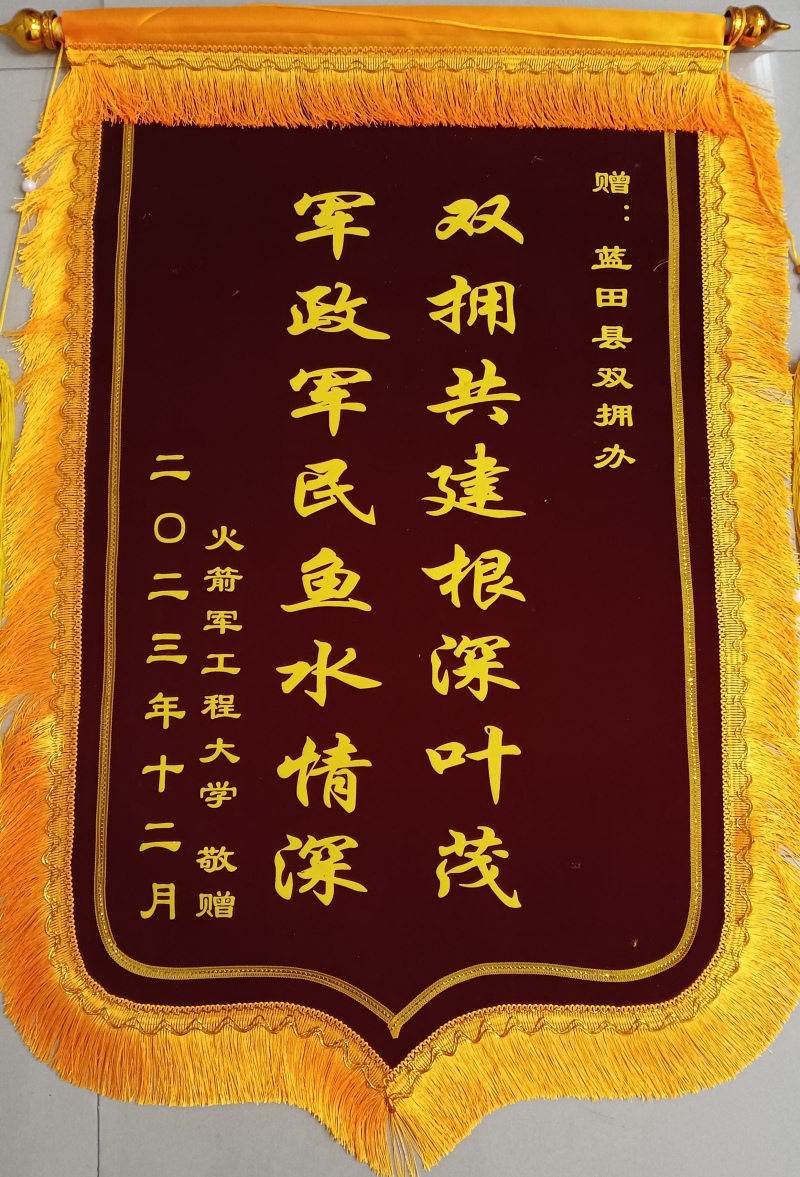 赠：蓝田县双拥办
双拥共建根深叶茂
军政军民鱼水情深
火箭军工程大学 敬赠
二〇二三年十二月